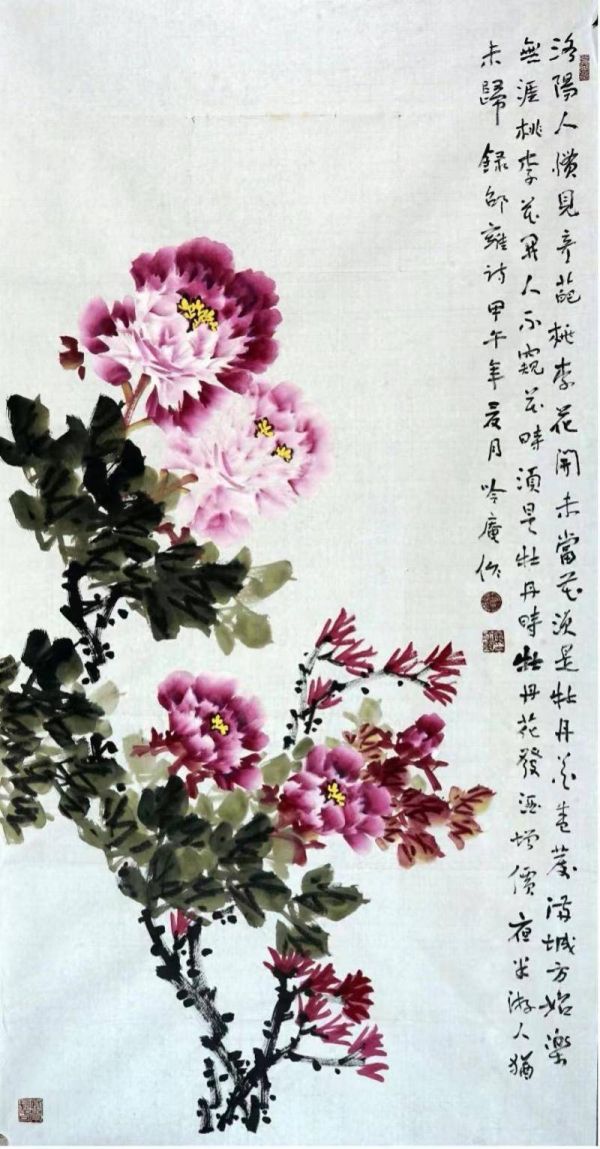 洛陽人慣見奇葩桃李花開未當花須是牡丹花盛發滿城方始樂
無涯桃李花開人不窺花時須是牡丹時牡丹花發酒增價夜半游人猶
未歸 録邵雍詩甲午年夏月吟庵作